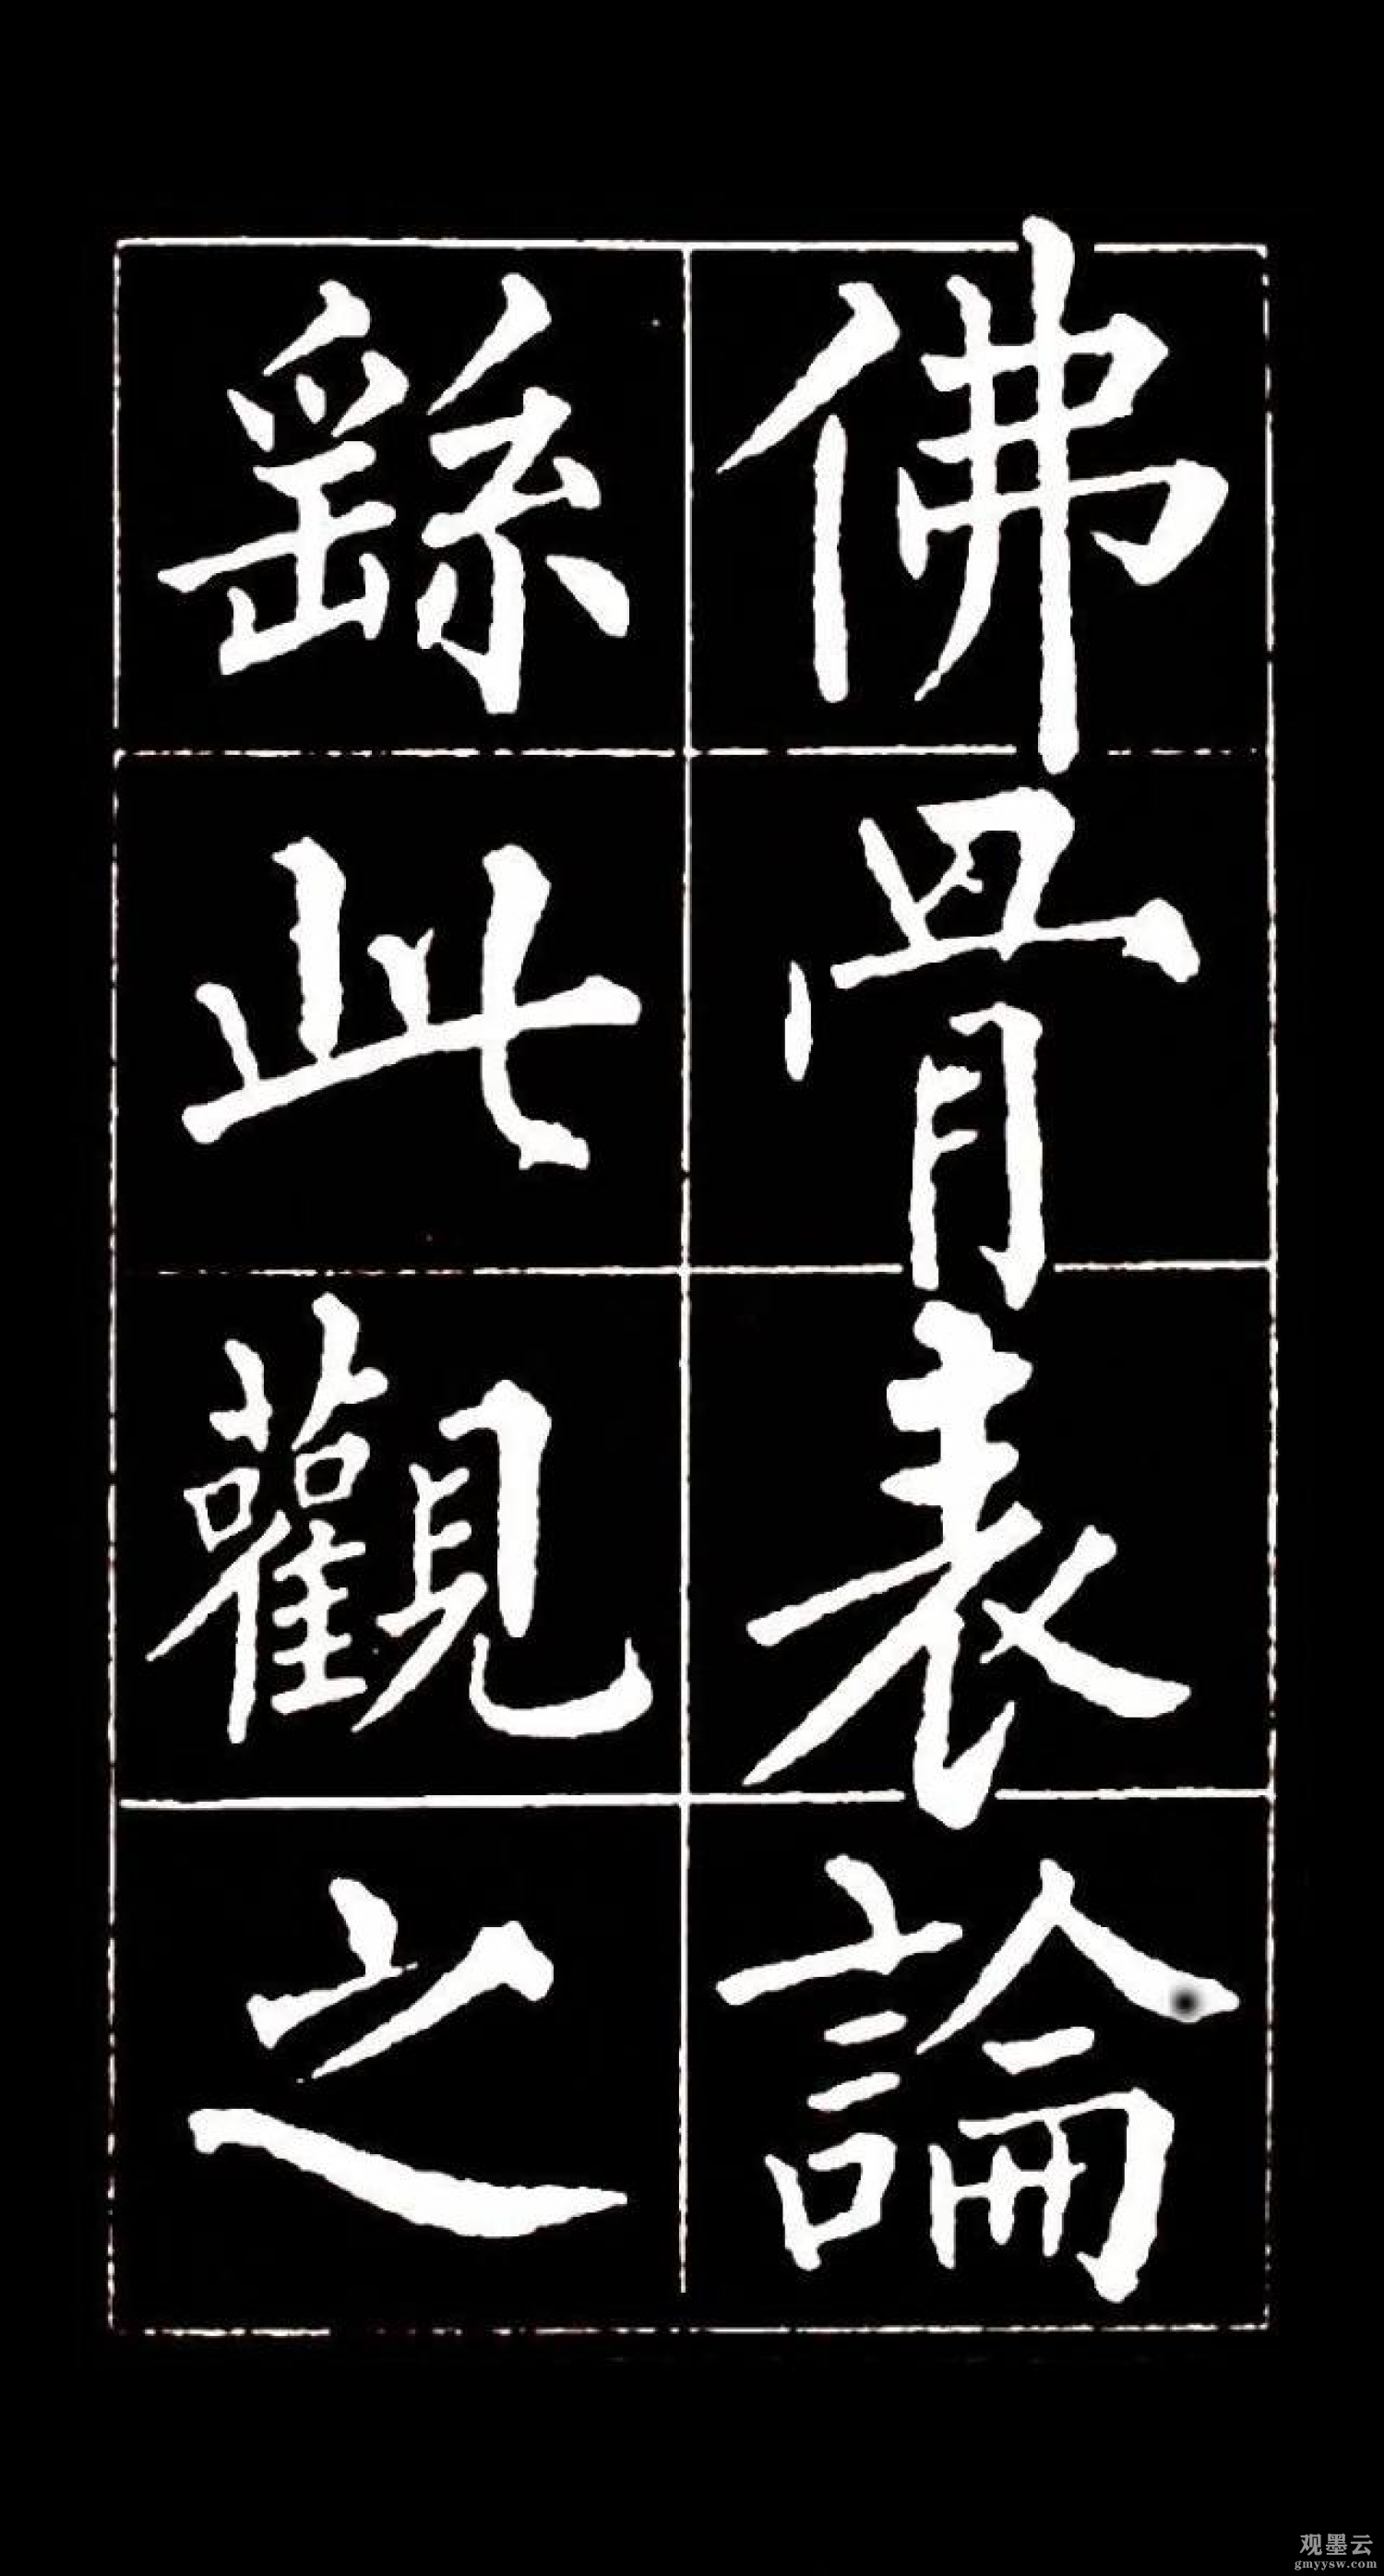 佛骨表論
繇此觀之
观墨云
gmyysw.com